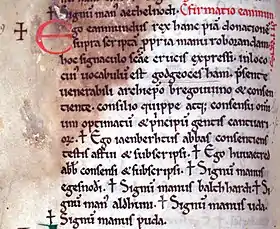 ✝ Signū man᷒ aeþelnodi. Cōfirmatio eanmun
Ego eanmundus rex hanc p̄iā donationē
supra scriptā ꝓpria manu roborandam
hoc signaculo scāe crucis expressi. in loco
cui uocabulū est godgeocesham. psente
venerabili archiepo bregouuino & consen
tiente. consilio quippe acti; consensu omni
um optimatū & pincipū gentis cantuari
orū. ✝ Ego iaenberhtus abbas consentiens
testis asto & subscripsi. ✝ Ego
abb consensi & subscripsi. ✝ Signū manus
egesnodi. ✝ Signū manus balchhardi. ✝ Si
gnū man᷒ aldhuni. ✝ Signū manus uda.
Signū manus puda.